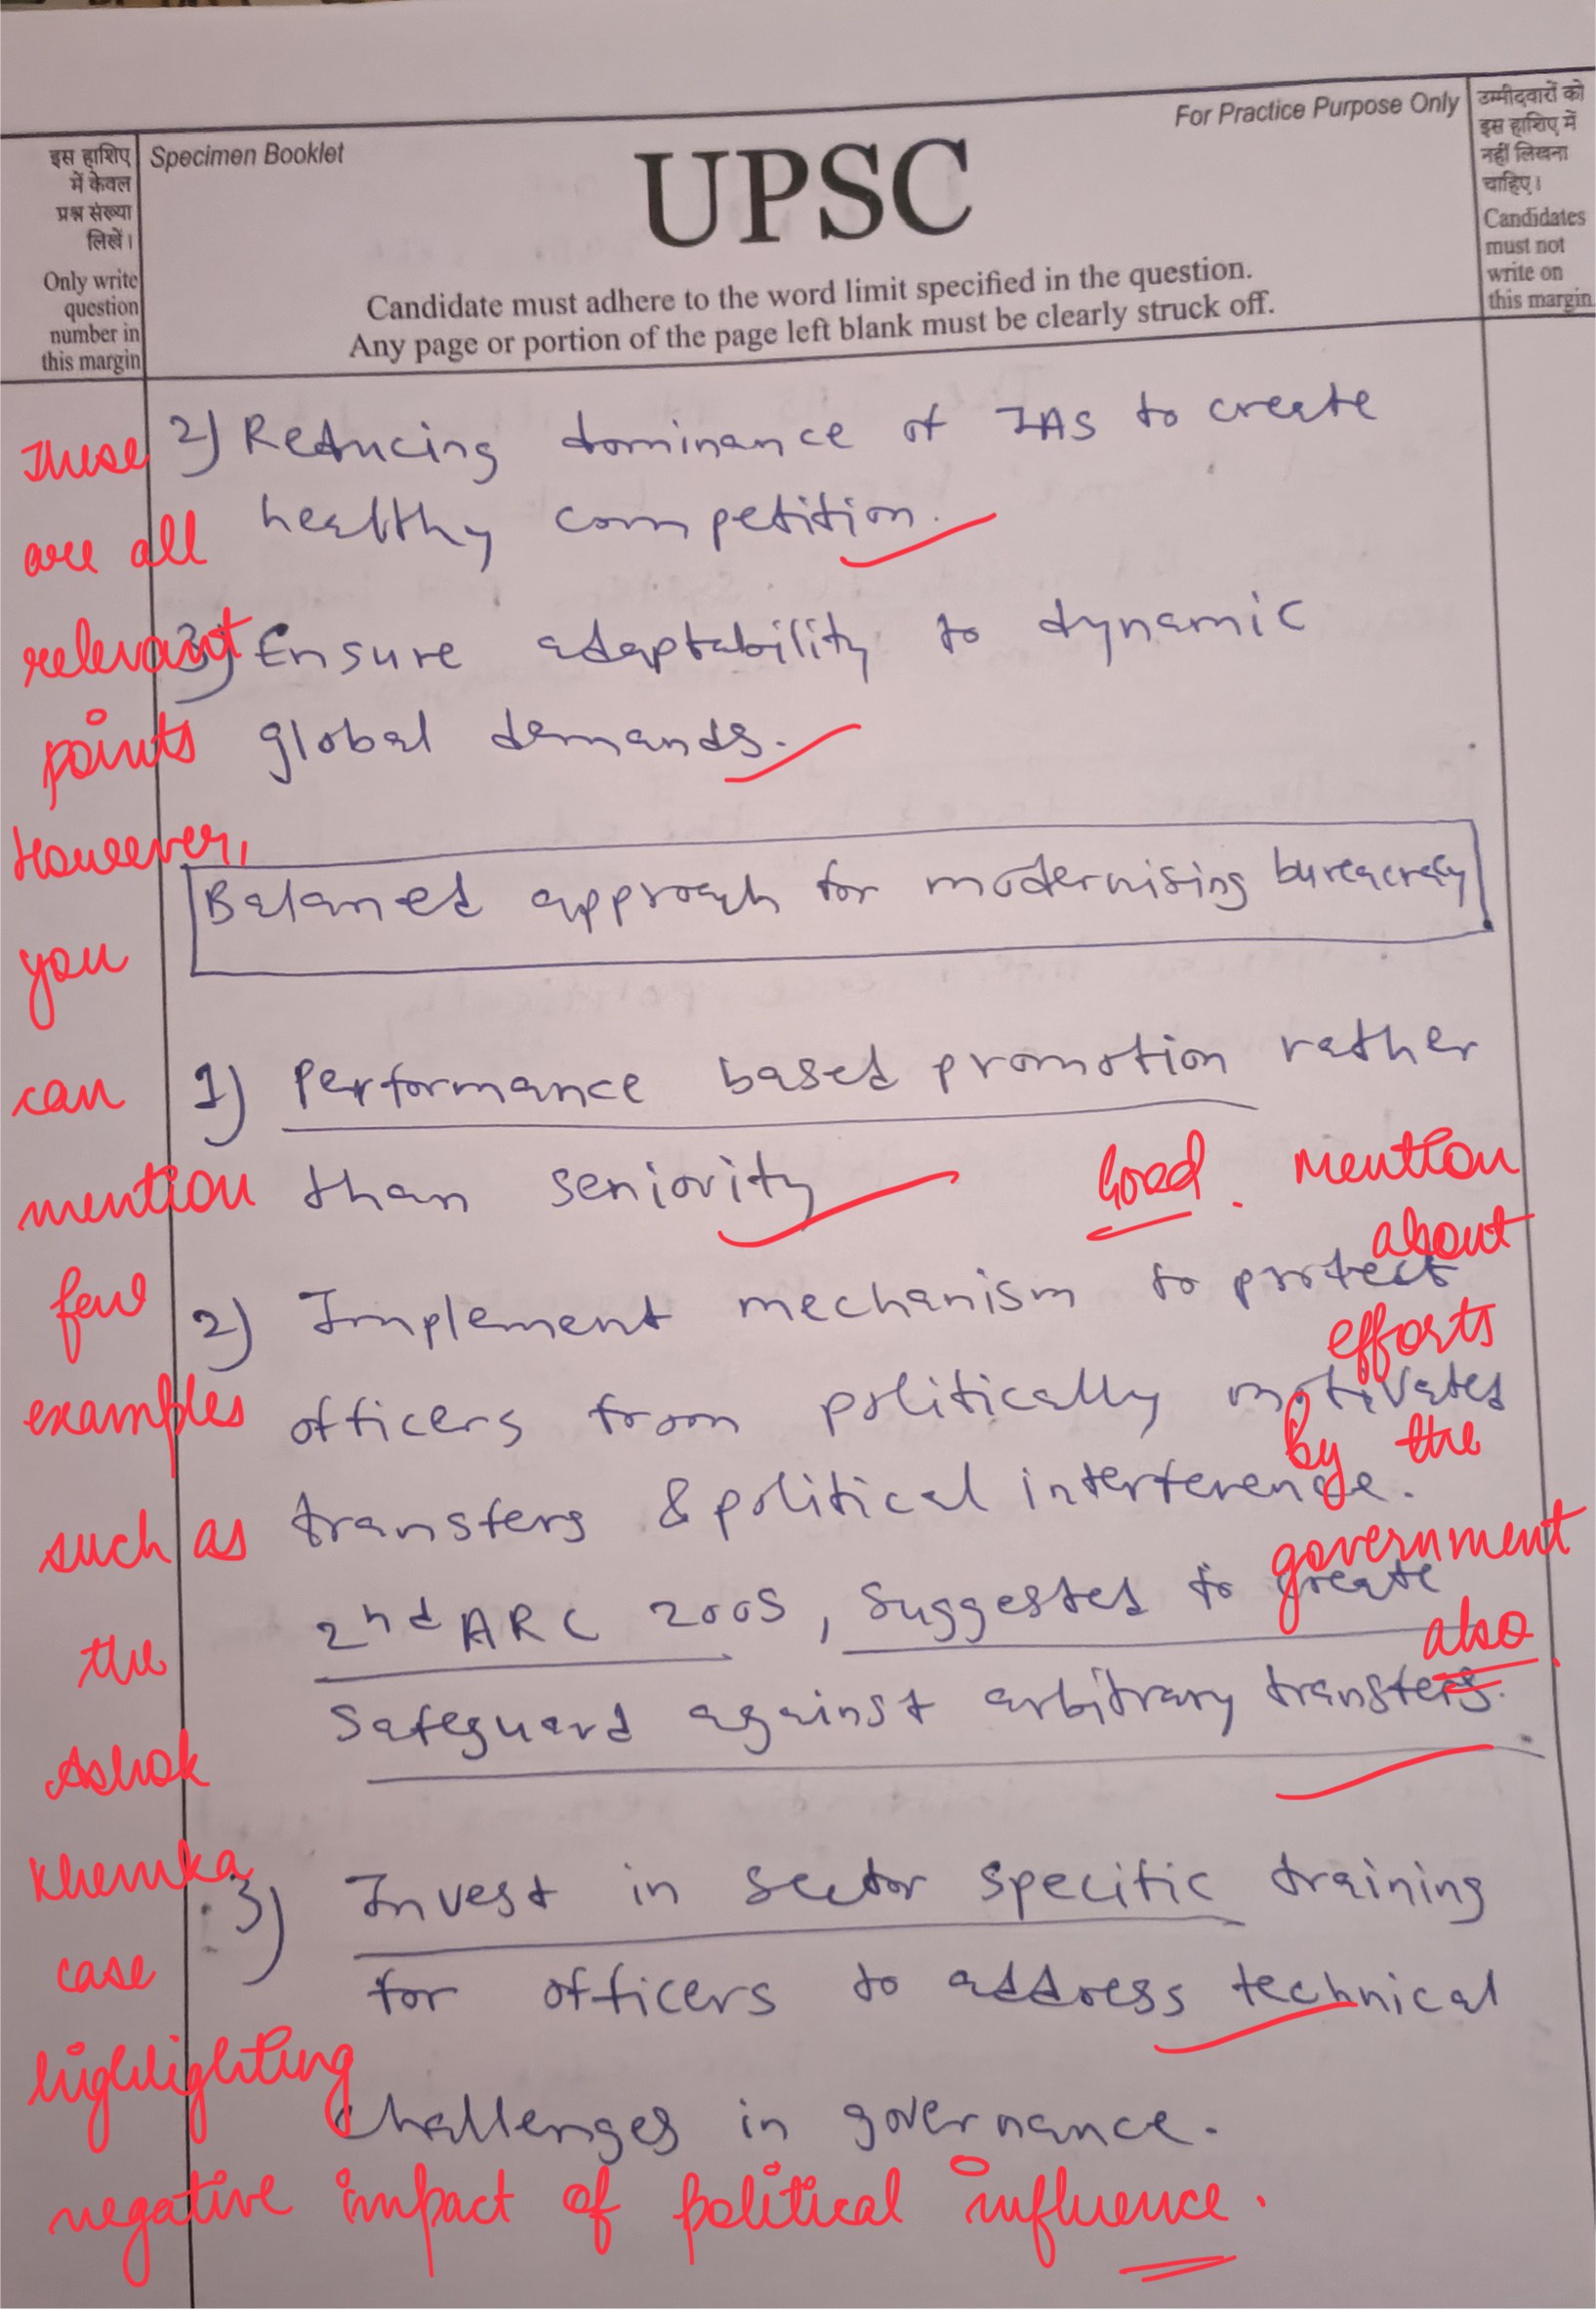 For Practice Purpose Only
इस हाशिए
में केवल
प्रश्न संख्या
लिखें।
Only write
question
number in
this margin
Specimen Booklet
UPSC
Candidate must adhere to the word limit specified in the question.
Any page or portion of the page left blank must be clearly struck off.
उम्मीदवारों को
इस हाशिए में
नहीं लिखना
चाहिए।
Candidates
must not
write on
this margin
2) Reducing dominance of IAS to create
healthy competition.
3) Ensure adaptability to dynamic
global demands.
Balanced approach for modernising bureacracy
1) Performance based promotion rather
than seniority
2) Implement mechanism to protect
officers from politically motivated
transfers & political interference.
2nd ARC 2005, suggested to create
safeguard against arbitrary transfers.
3) Invest in sector specific training
for officers to address technical
challenges in governance.
These
are all
relevant
points
However,
you
can
mention
few
examples
such as
the
Ashok
Khemka
case
highlighting
negative impact of political influence.
Good. Mention
about
efforts
by the
government
also.